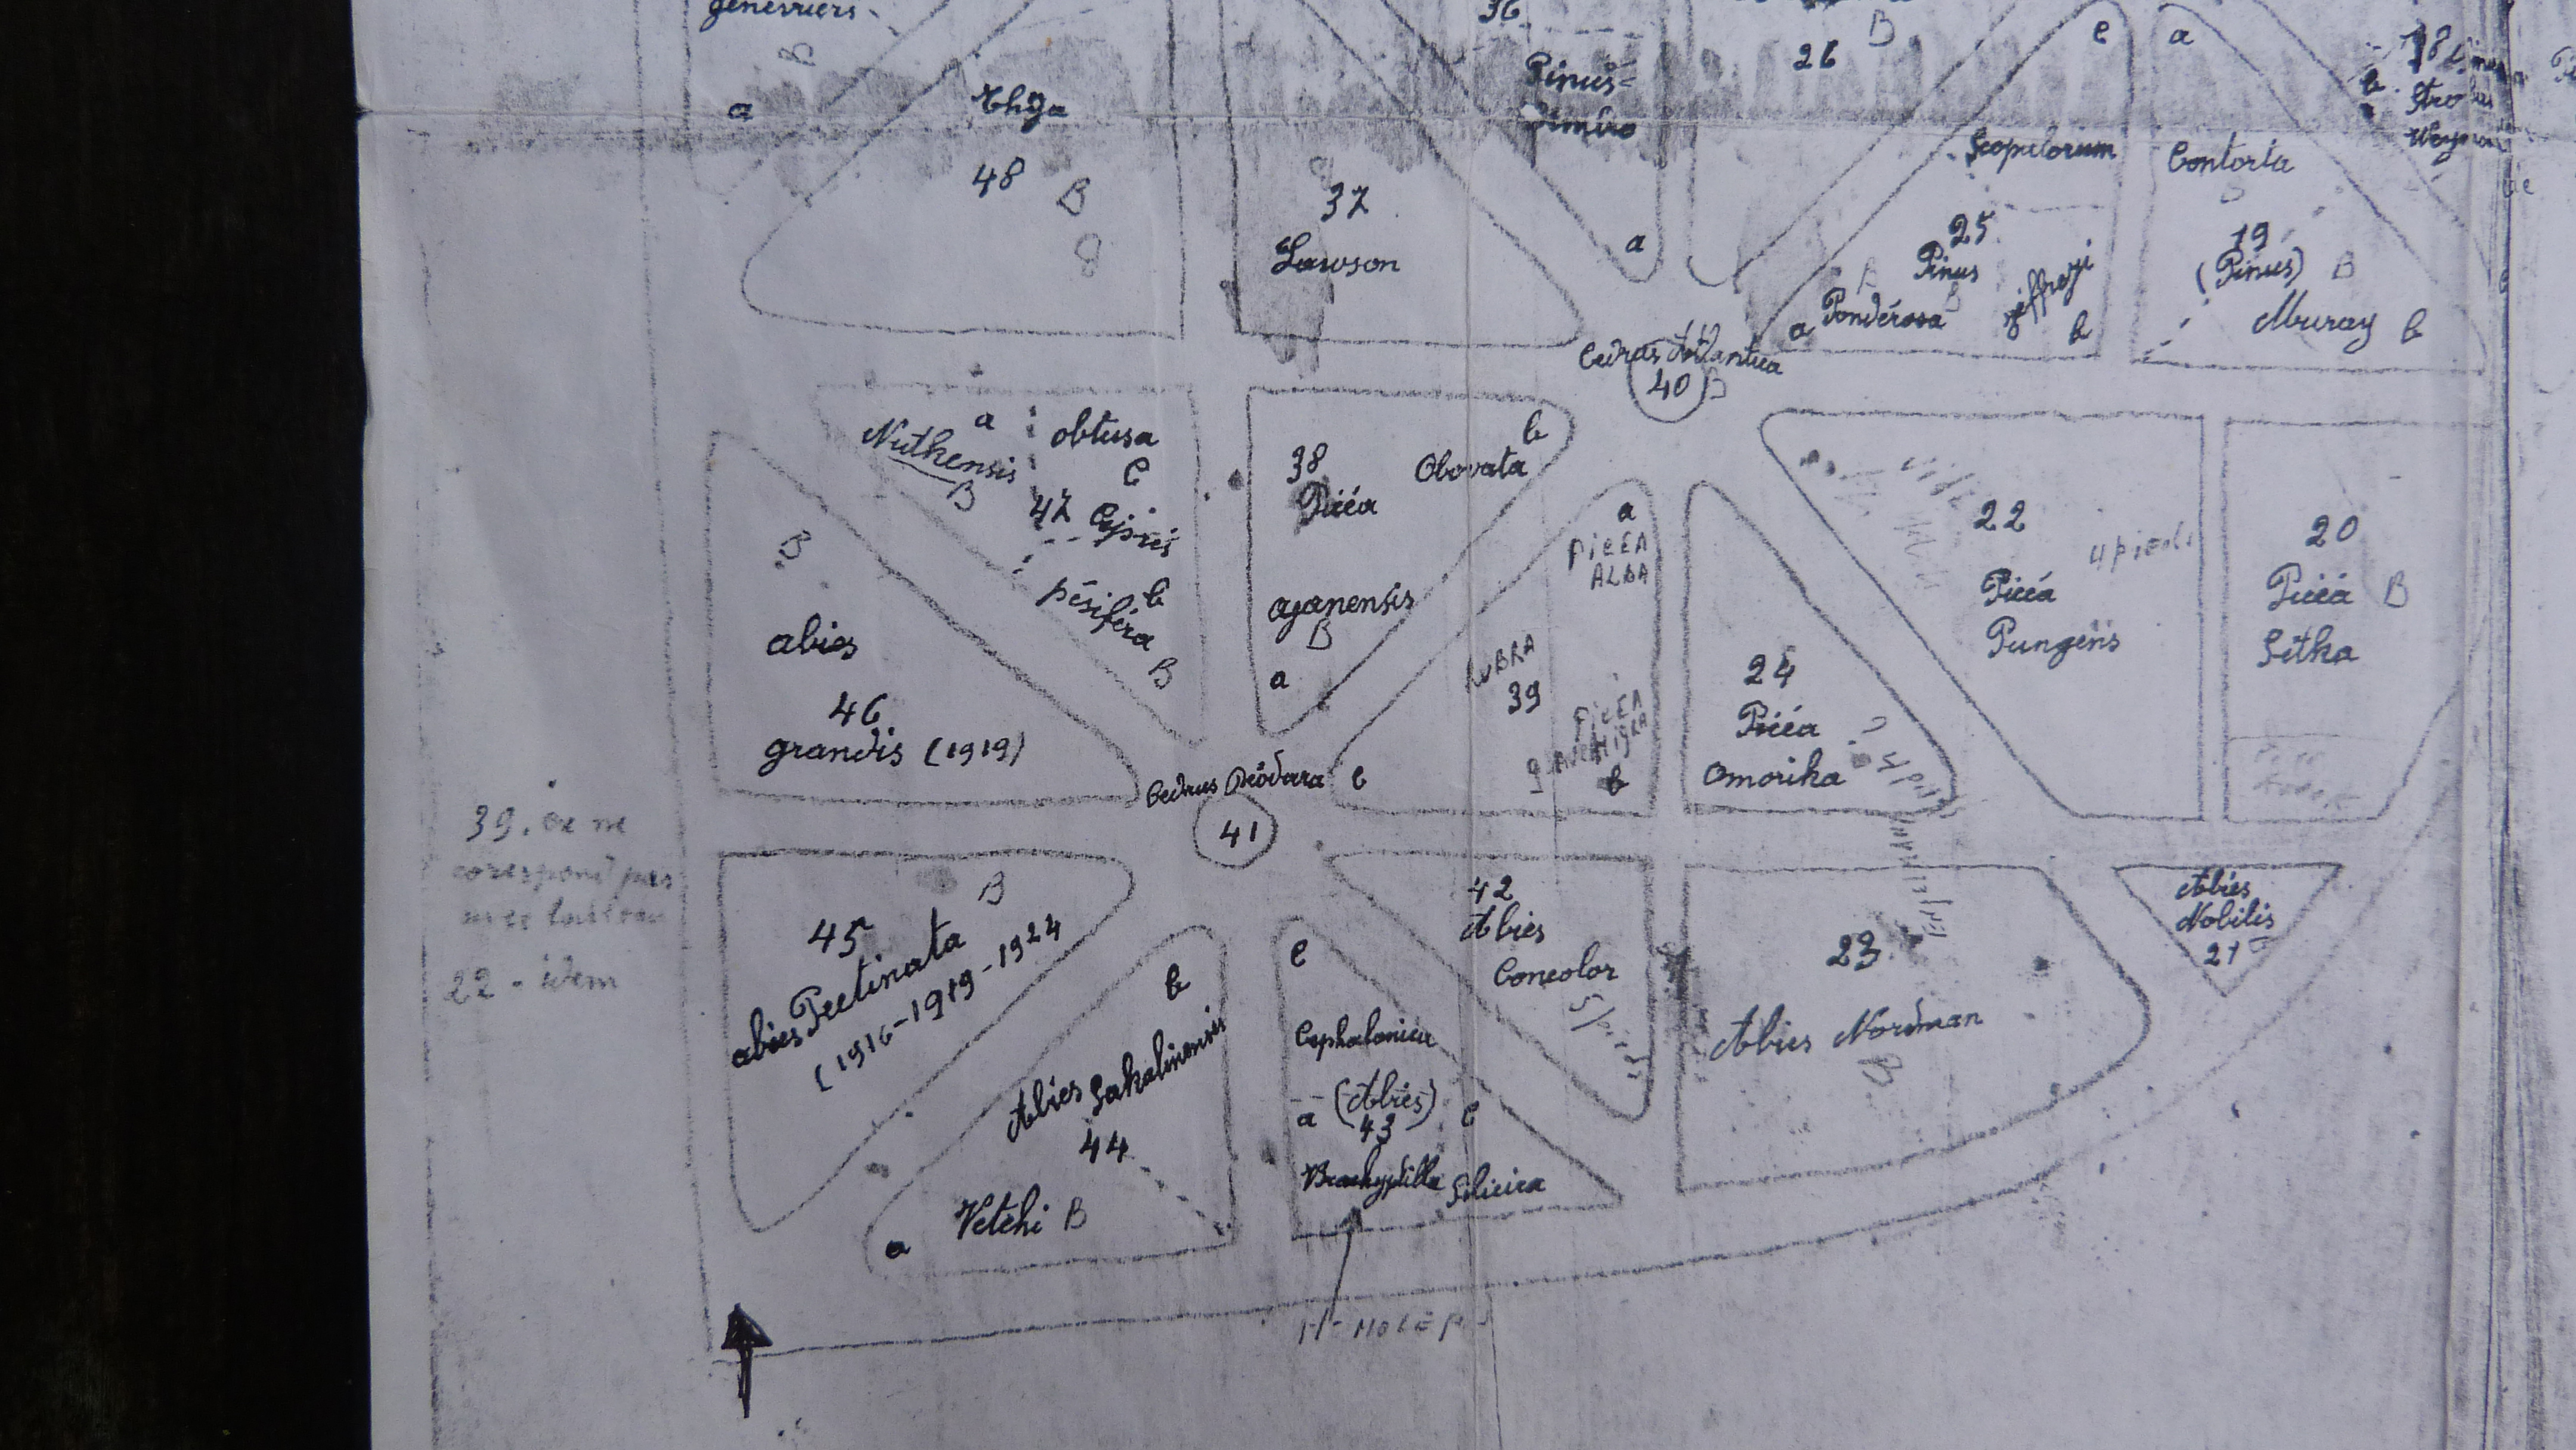 genevriers
B
a
Thya
48
B
8
36
Pinus
37
Lawson
a
26
B
c
a
Scopulorum
25
Pinus
Pondérosa
a
jeffreyi
b
Contorta
19
(Pinus) B
Muray b
18
b
Strobus
Cedrus Atlantica
40
B
a
Nutkensis
B
obtusa
c
47 Cyprés
b
pésiféra
B
38
Picéa
b
Obovata
ajanensis
B
a
a
PICEA
ALBA
RUBRA
39
PICEA
NIGRA
b
c
24
Picéa
Omorika
22
Picéa
Pungens
4 pieds
20
Picéa B
Sitka
B
abies
46
grandis (1919)
Cedrus Déodara
41
39. ce ne
correspond pas
22 - idem
45
B
abies Pectinata
(1916-1919-1924
b
Abies Sakalinensis
44
Vetchi B
a
c
Cephalonica
a (Abies) c
43
Brachyphilla Silicica
42
Abies
Concolor
23
Abies Nordman
B
Abies
Nobilis
21